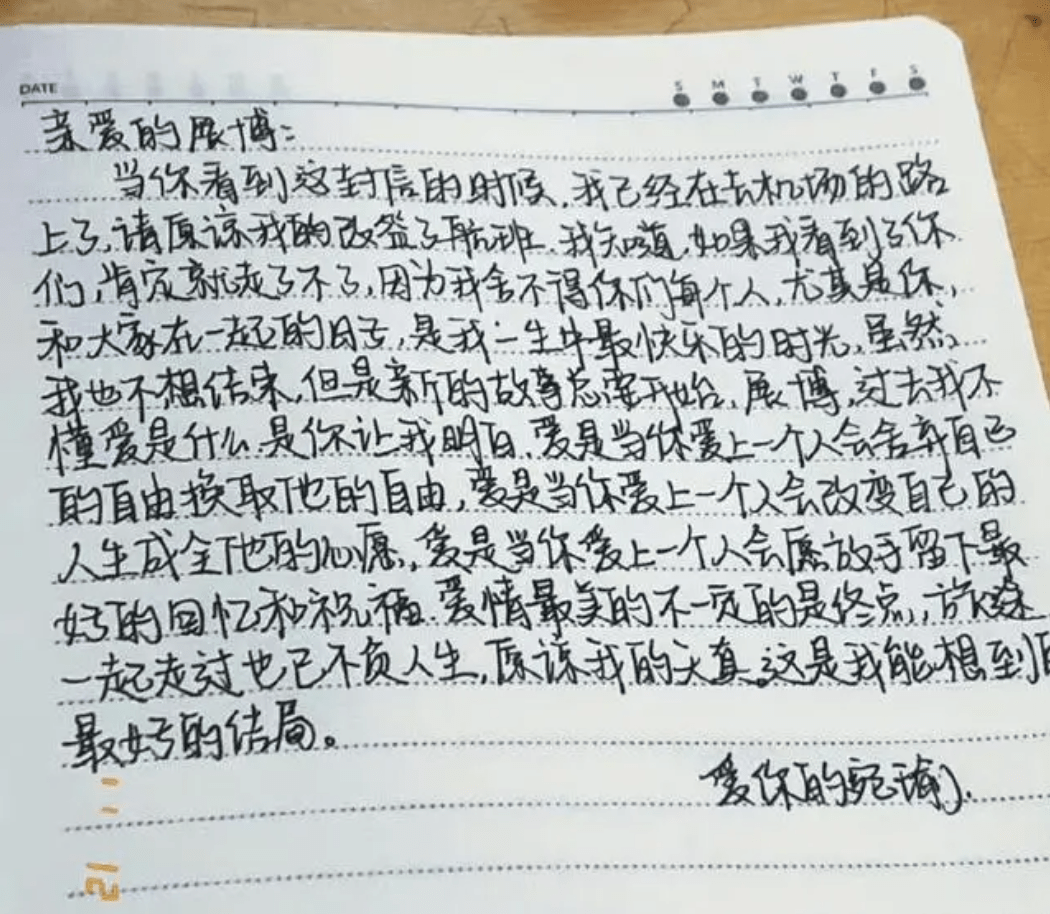 DATE
S M T W T F S
亲爱的展博：
当你看到这封信的时候,我已经在去机场的路
上了,请原谅我的改签了航班.我知道,如果我看到了你
们,肯定就走了不了,因为我舍不得你们每个人,尤其是你,
和大家在一起的日子,是我一生中最快乐的时光,虽然,
我也不想结束,但是新的故事总要开始,展博,过去我不
懂爱是什么.是你让我明白,爱是当你爱上一个人会舍弃自己
的自由换取他的自由,爱是当你爱上一个人会改变自己的
人生成全他的心愿,爱是当你爱上一个人会愿放手留下最
好的回忆和祝福.爱情最美的不一定的是终点,旅途
一起走过也已不负人生,原谅我的天真,这是我能想到的
最好的结局。
爱你的宛瑜.
11
12